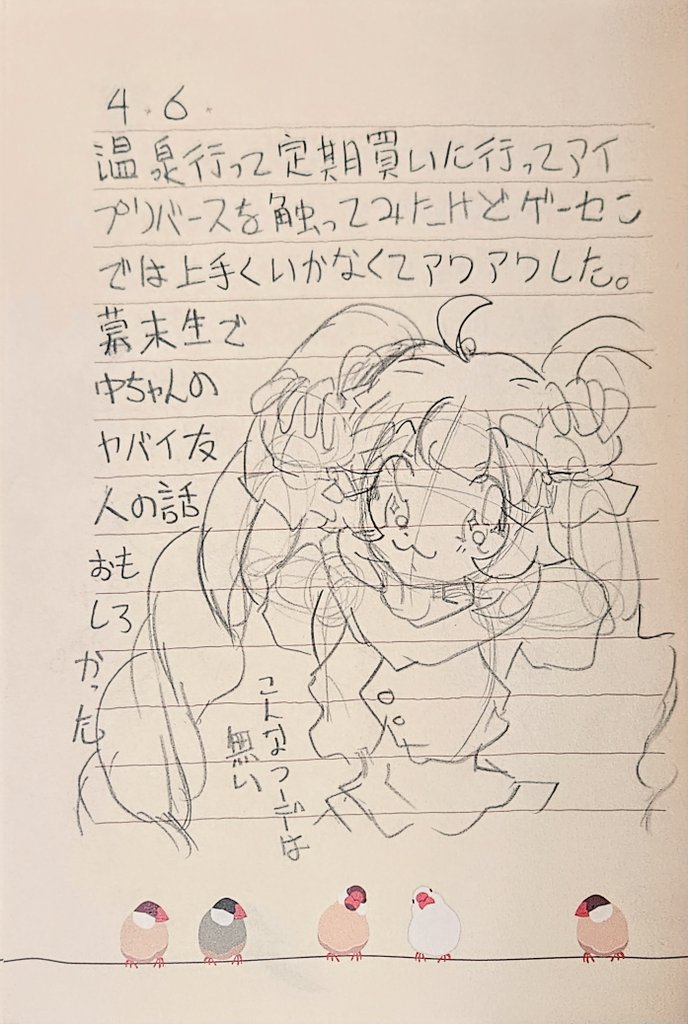 4.6.
温泉行って定期買いに行ってアイ
プリバースを触ってみたけどゲーセン
では上手くいかなくてアワアワした。
幕末生で
中ちゃんの
ヤバイ友
人の話
おも
しろ
かった
こんなコーデは
無い